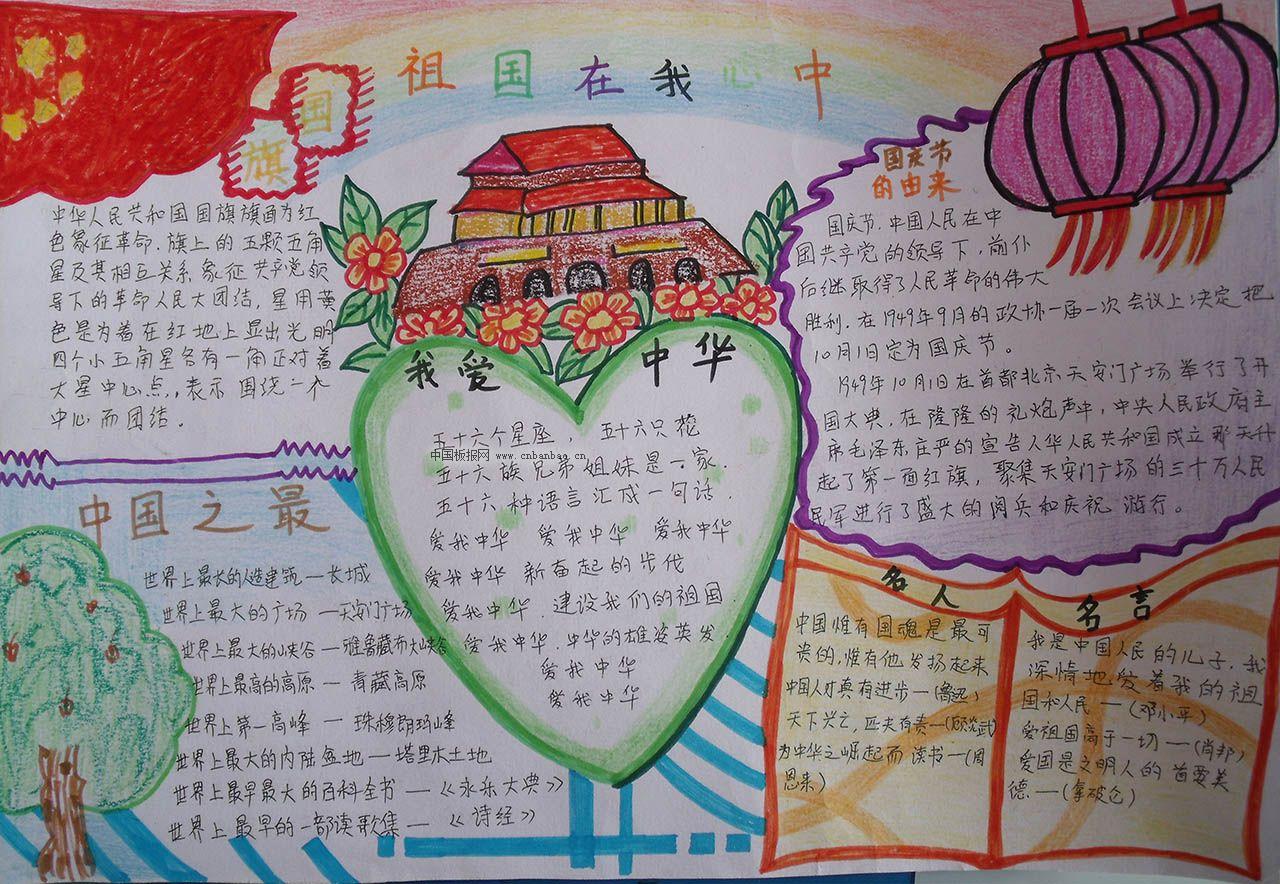 祖国在我心中
国
旗
中华人民共和国国旗旗面为红
色象征革命.旗上的五颗五角
星及其相互关系象征共产党领
导下的革命人民大团结,星用黄
色是为着在红地上显出光明
四个小五角星各有一角正对着
大星中心点,,表示围绕一个
中心而团结.
中国之最
世界上最长的人造建筑—长城
世界上最大的广场—天安门广场
世界上最大的峡谷—雅鲁藏布大峡谷
世界上最高的高原—青藏高原
世界上第一高峰—珠穆朗玛峰
世界上最大的内陆盆地—塔里木土地
世界上最早最大的百科全书—《永乐大典》
世界上最早的一部读歌集—《诗经》
我爱 中华
五十六个星座,五十六只花
中国板报网 www.cnbanbao.cn
五十六族兄弟姐妹是一家.
五十六种语言汇成一句话.
爱我中华 爱我中华 爱我中华
爱我中华 新奋起的步伐
爱我中华.建设我们的祖国
爱我中华.中华的雄姿英发.
爱我中华
爱我中华
国庆节
的由来
国庆节,中国人民在中
国共产党的领导下,前仆
后继取得了人民革命的伟大
胜利.在1949年9月的政协一届一次会议上决定把
10月1日定为国庆节。
1949年10月1日在首都北京天安门广场举行了开
国大典,在隆隆的礼炮声中,中央人民政府主
席毛泽东庄严的宣告人华人民共和国成立那天升
起了第一面红旗,聚集天安门广场的三十万人民
民军进行了盛大的阅兵和庆祝游行。
名人
中国惟有国魂是最可
贵的,惟有他发扬起来
中国人才真有进步—(鲁迅)
天下兴亡,匹夫有责—(顾炎武)
为中华之崛起而读书—(周
恩来)
名言
我是中国人民的儿子.我
深情地爱着我的祖
国和人民—(邓小平)
爱祖国高于一切—(肖邦)
爱国是文明人的首要美
德.—(拿破仑)